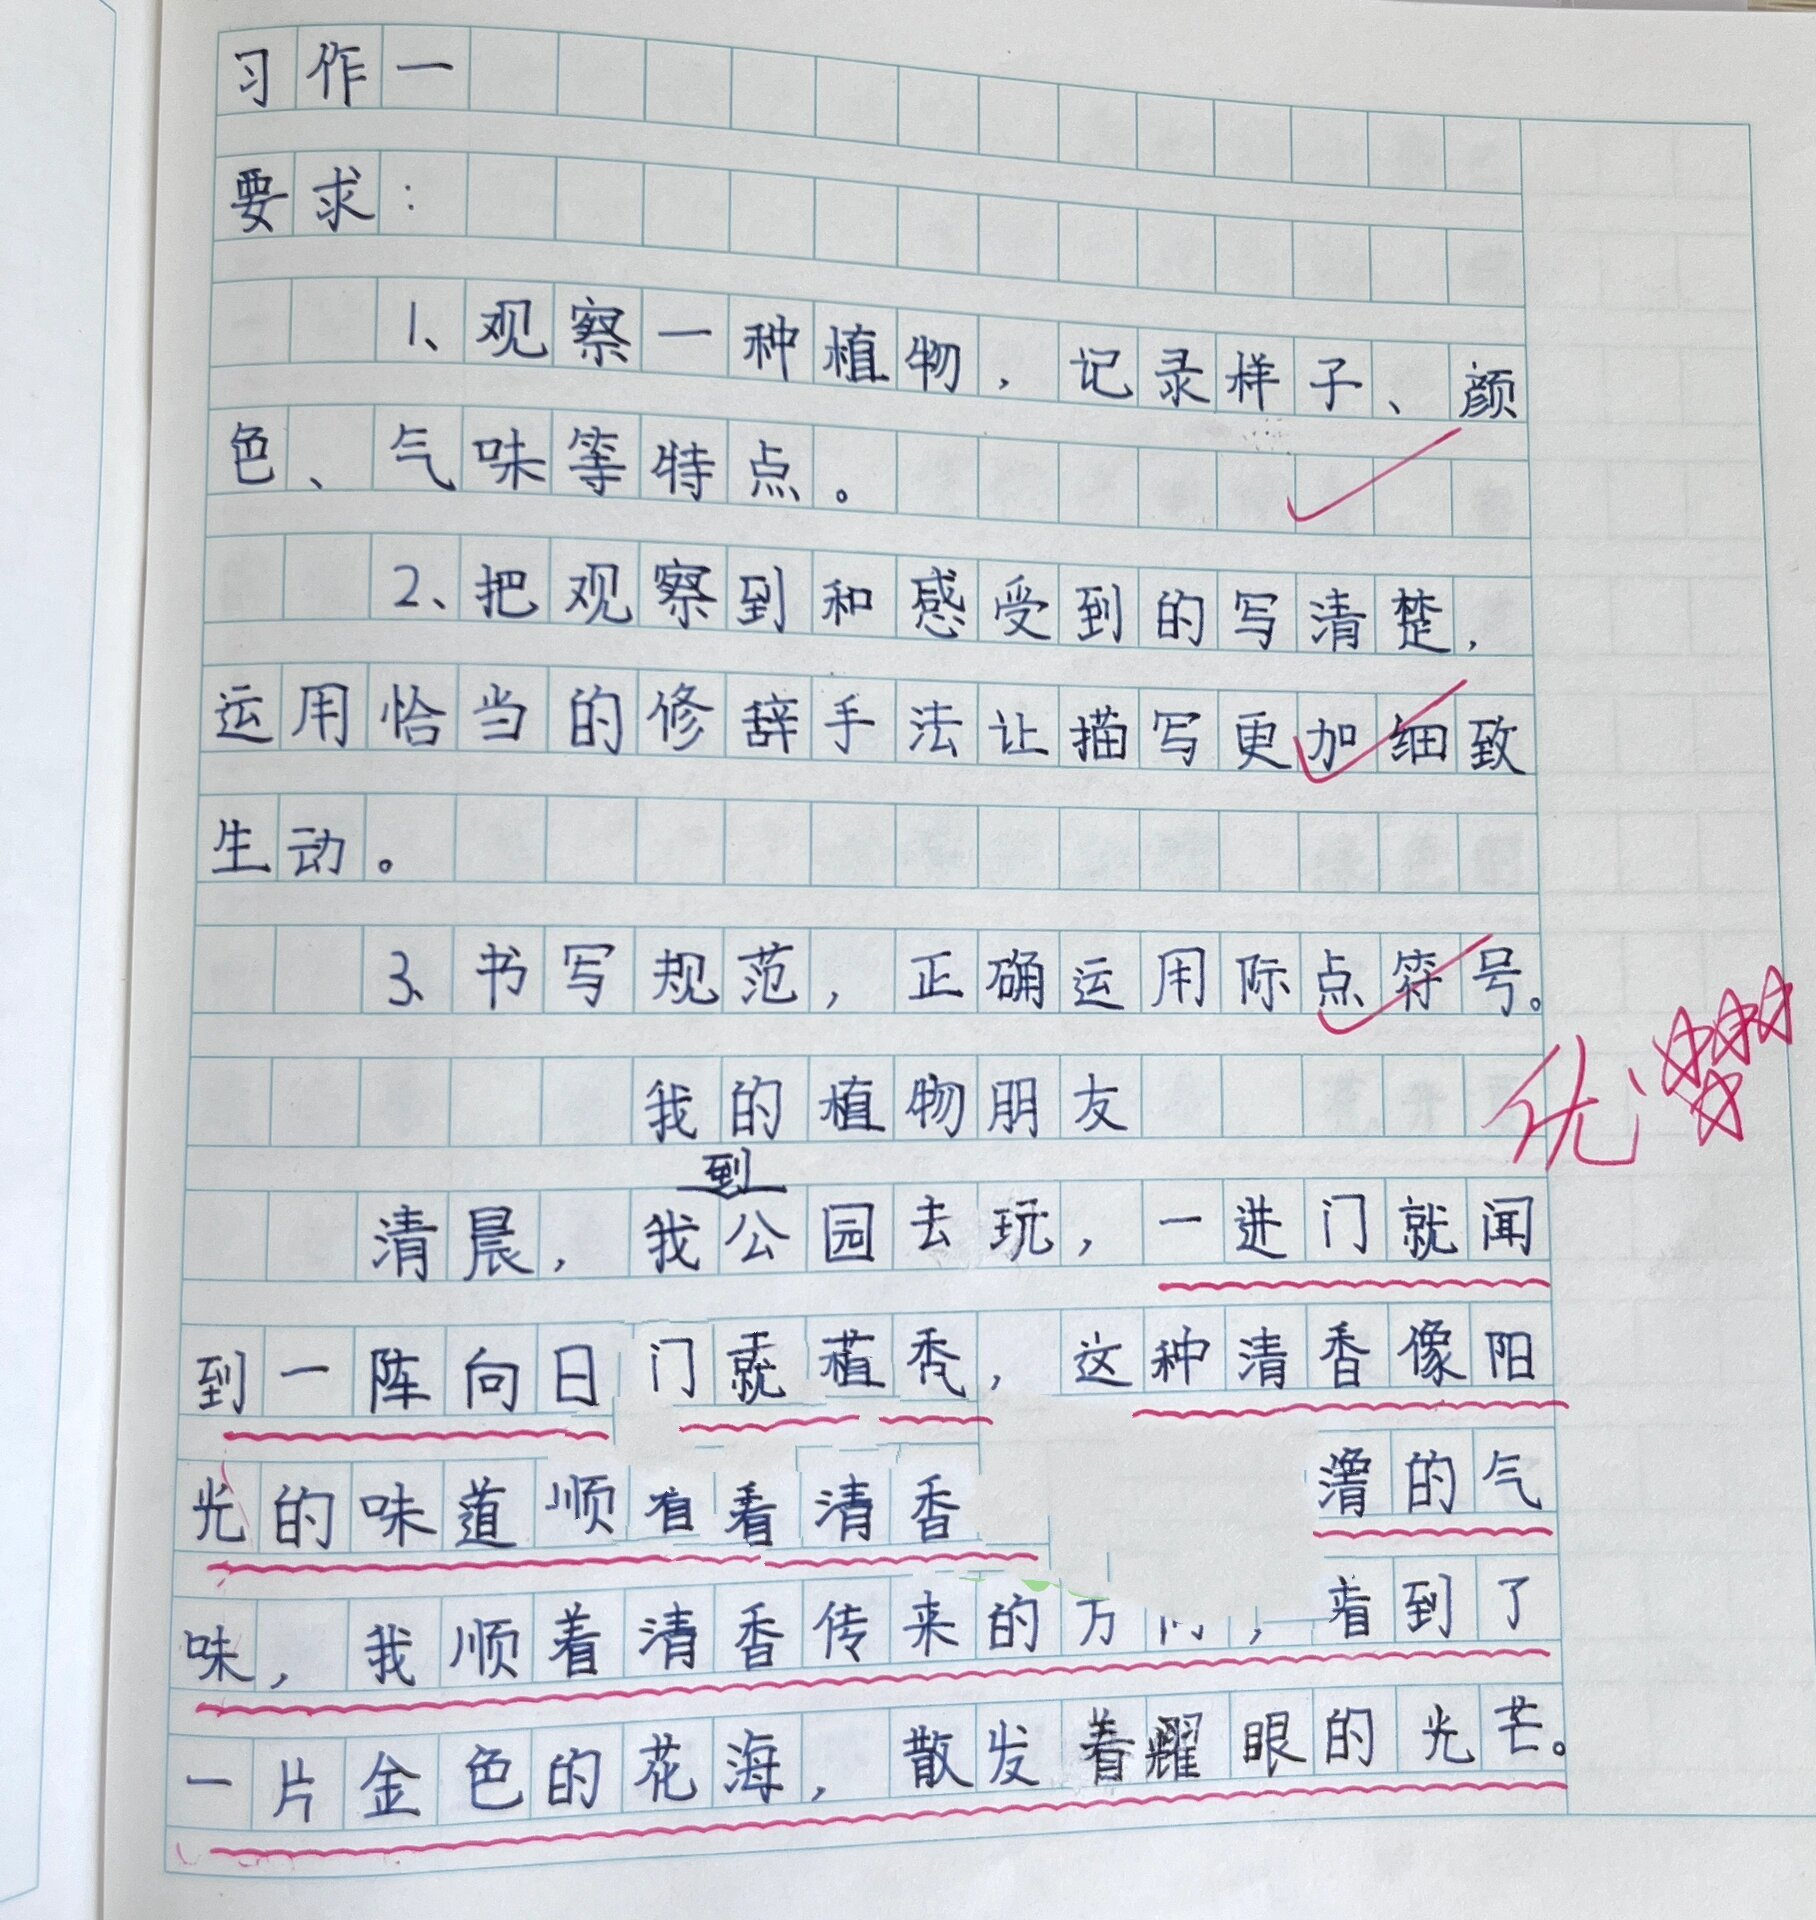 习作一
要求：
1、观察一种植物，记录样子、颜
色、气味等特点。
2、把观察到和感受到的写清楚，
运用恰当的修辞手法让描写更加细致
生动。
3、书写规范，正确运用际点符号。
优
我的植物朋友
到
清晨，我公园去玩，一进门就闻
到一阵向日门，这种清香像阳
光的味道顺看清香的气
味，我顺着清香传来的方，看到了
一片金色的花海，散发着耀眼的光芒。